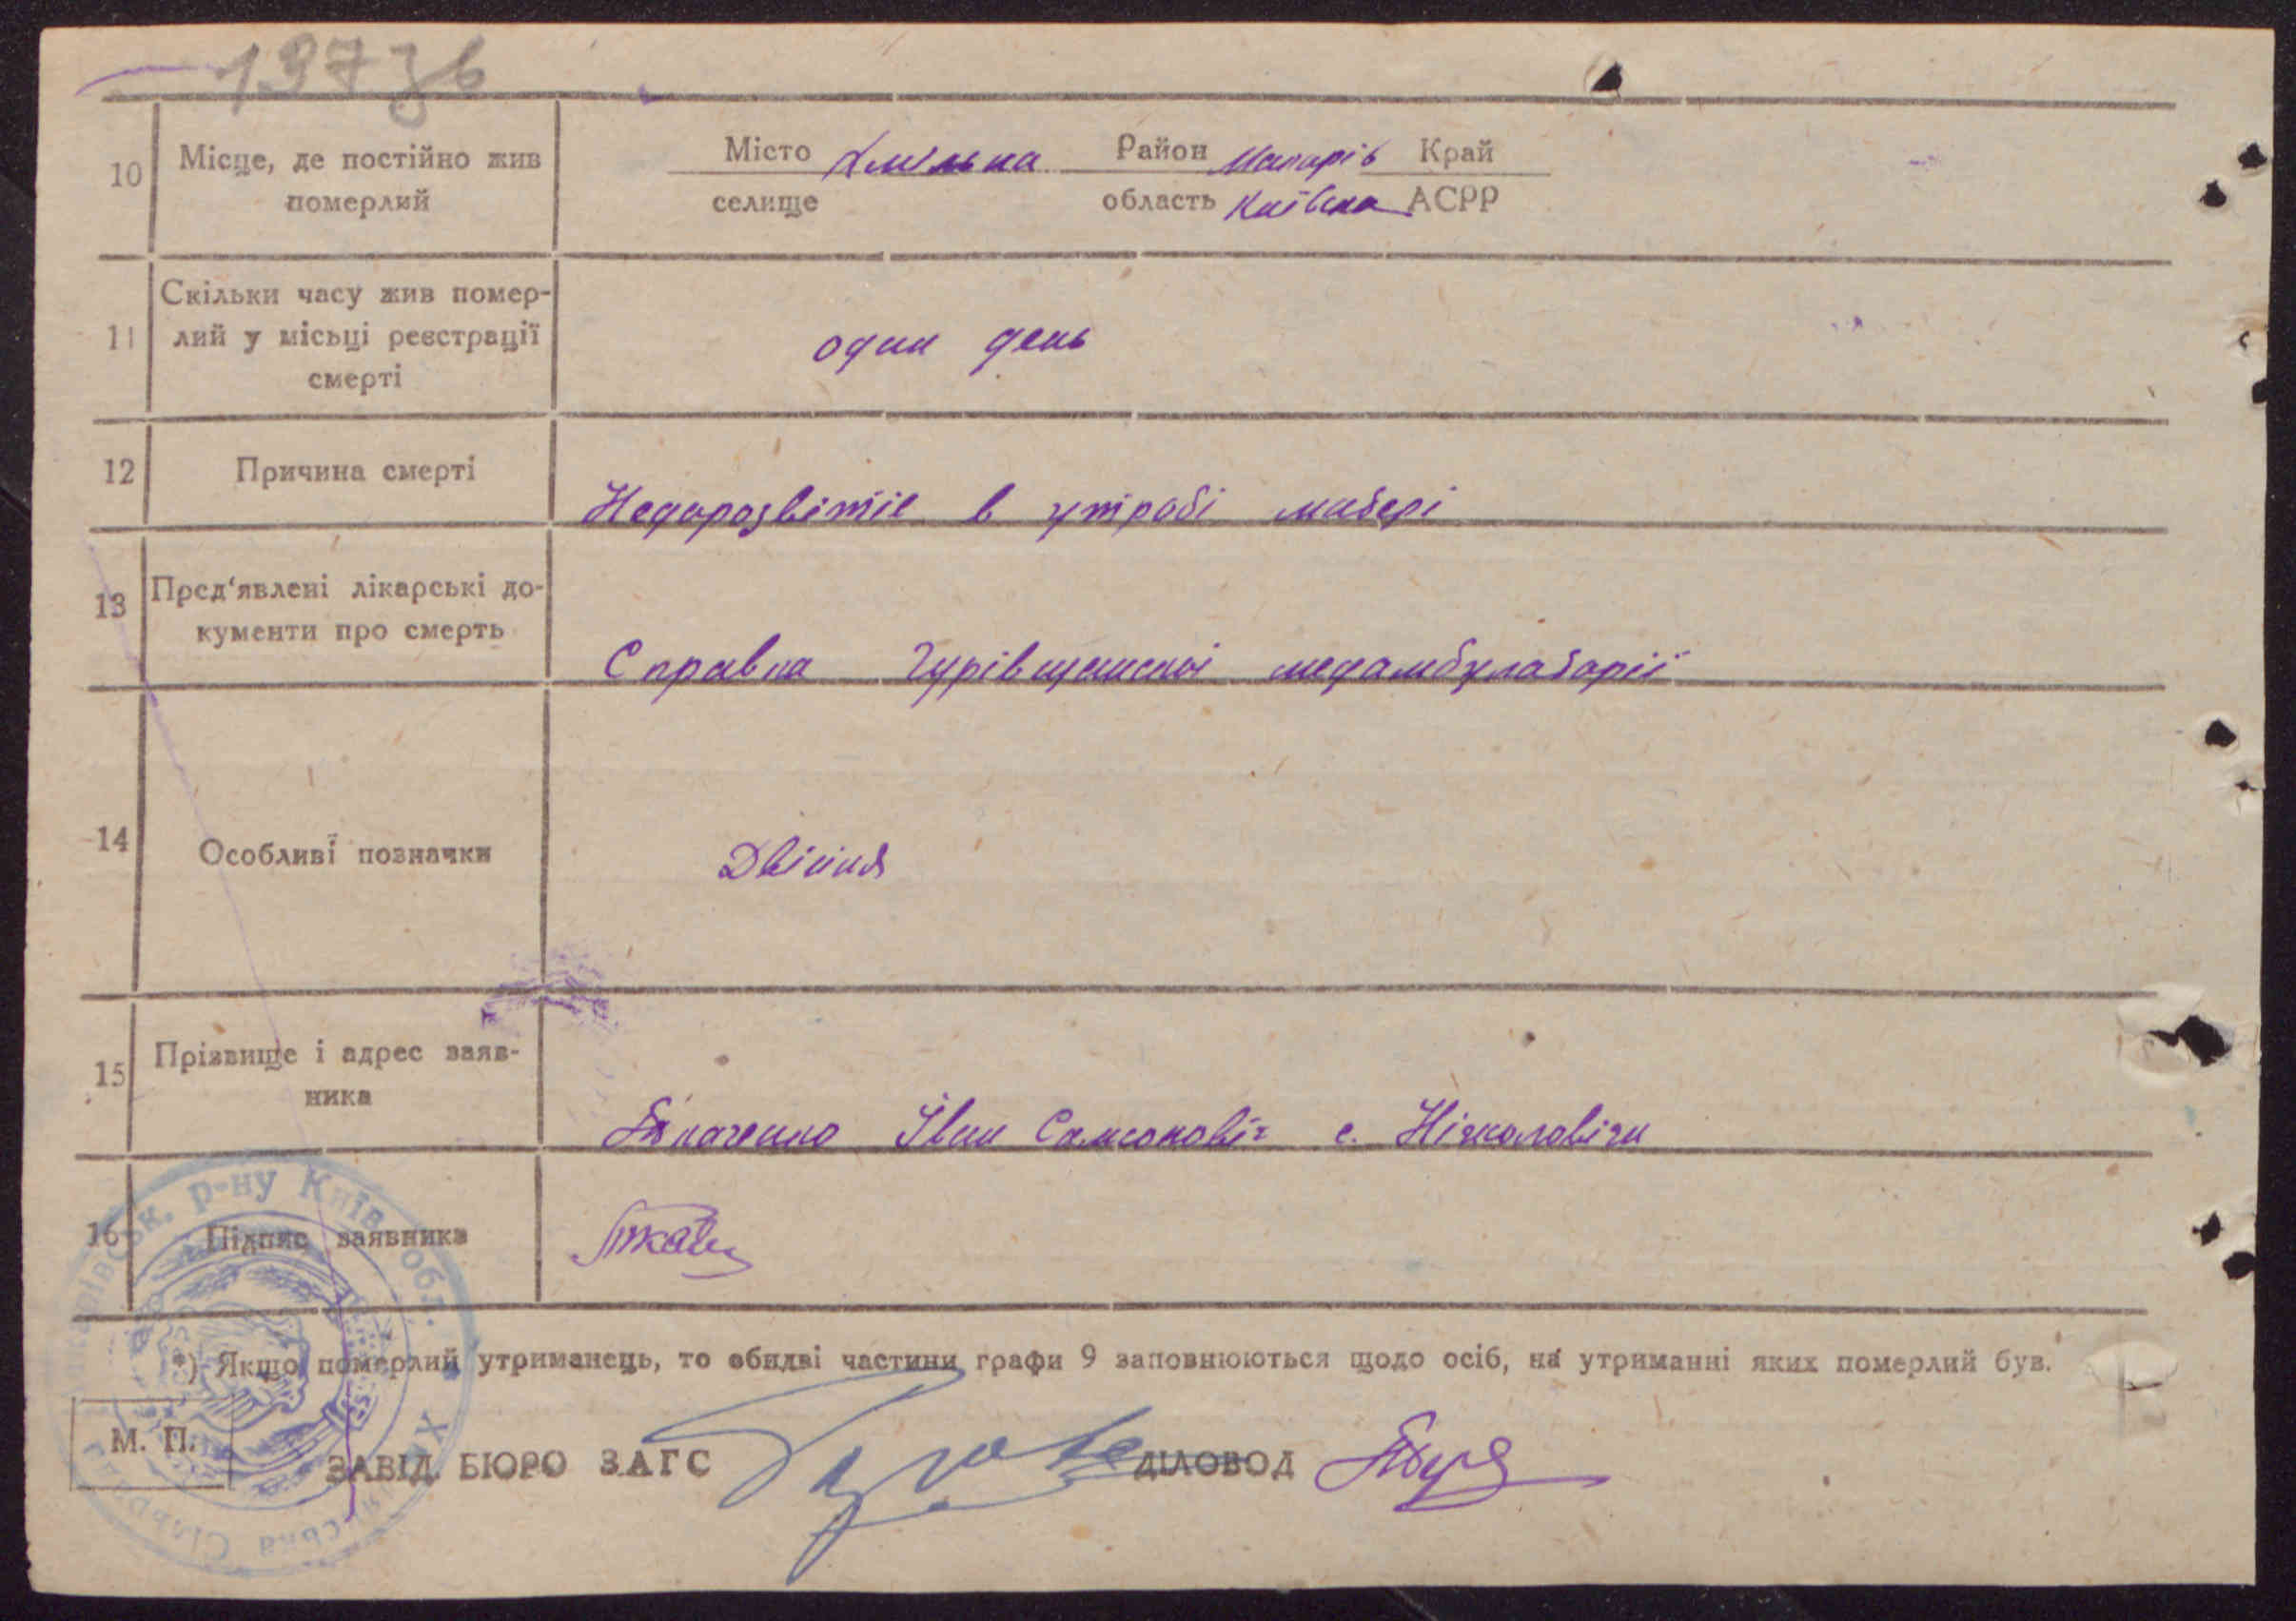 137 зв
10 Місце, де постійно жив
померлий
Місто Хмільна Район Макарів Край
селище область Київська АСРР
11 Скільки часу жив помер-
лий у місьці реєстрації
смерті
один день
12 Причина смерті
Недорозвітіе в утробі матері
13 Пред'явлені лікарські до-
кументи про смерть
Справка Гурівщанської медамбулаторії
14 Особливі позначки
Двійня
15 Прізвище і адрес заяв-
ника
Іван Самсоновіч с.
16 Підпис заявника
*) Якщо померлий утриманець, то обидві частини графи 9 заповнюються щодо осіб, на утриманні яких померлий був.
М. П.
ЗАВІД. БЮРО ЗАГС ДІЛОВОД
р-ну Київ. обл.